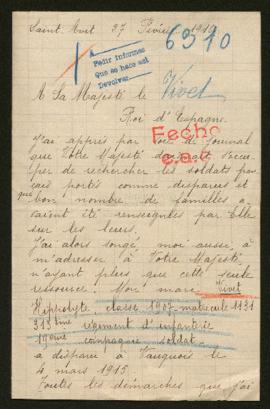 Saint Avit 27 Février 1916
6310
A
Pedir informes
que se hace así
Devolver
A Sa Majesté le
Vivet
Roi d'Espagne.
J'ai appris par voie de Journal
que Votre Majesté daignait s'occu-
per de rechercher les soldats
portés comme disparus et
que bon nombre de familles a-
vaient été renseignées par Elle
sur les leurs.
J'ai alors songé, moi aussi, à
m'adresser à Votre Majesté
n'ayant plus que cette seule
ressource. Mon mari Vivet
Hippolyte, classe 1907 matricule 1131
313ème régiment d'infanterie
19ème compagnie soldat
a disparu à Vauquois le
4 mars 1915.
Toutes les démarches que j'ai
Fecho